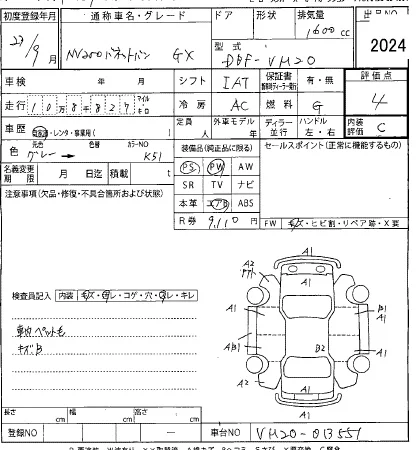 初度登録年月 通称車名・グレード ドア 形状 排気量 出品NO
27/9月 NV200バネットバン GX 1600cc
型式 DBF-VM20 2024
車検 年 月 シフト IAT 保証書 有・無 評価点
走行 108427 マイル キロ 冷房 AC 燃料 G 4
車歴 自家用・レンタ・事業用( ) 定員 人 外車モデル 年 ディーラー 並行 ハンドル 左・右 内装評価 C
色 元色 グレー→ 色替 カラーNO K51 装備品(純正品に限る) セールスポイント(正常に機能するもの)
名義変更期限 月 日迄 積載 t PS PW AW
注意事項(欠品・修復・不具合箇所および状態) SR TV ナビ
本革 エアB ABS
R券 9,110円 FW キズ・ヒビ割・リペア跡・X要
検査員記入 内装 キズ・汚レ・コゲ・穴・スレ・キレ
車内ペット毛
キズB
A1
A2 A1
A1 B1
A1
AB1 B2 A1
A2 A1
A1
長さ cm 幅 cm 高さ cm
登録NO — 車台NO VM20-013551